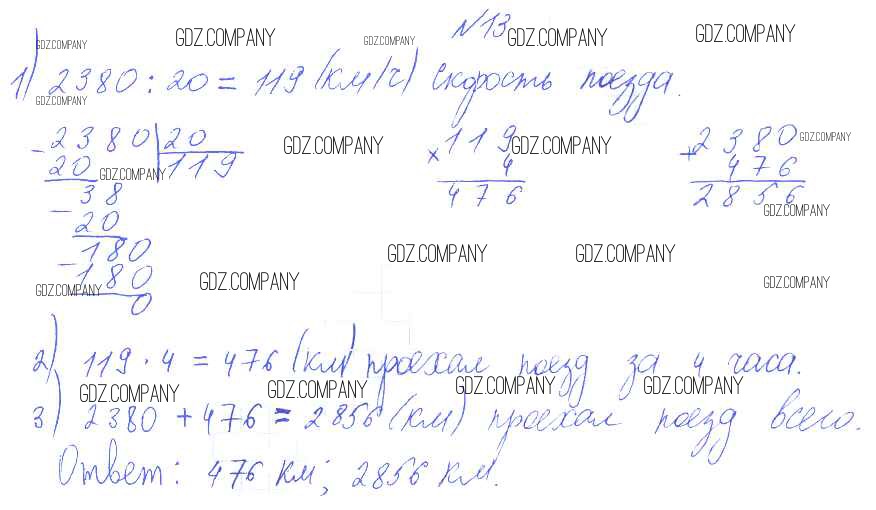 GDZ.COMPANY GDZ.COMPANY GDZ.COMPANY №13 GDZ.COMPANY GDZ.COMPANY
1) 2380 : 20 = 119 (км/ч) скорость поезда.
GDZ.COMPANY
- 2380 20 × 119 GDZ.COMPANY GDZ.COMPANY + 2380 GDZ.COMPANY
20 GDZ.COMPANY 119 4 476
- 38 476 2856
20 GDZ.COMPANY
- 180 GDZ.COMPANY GDZ.COMPANY
180 GDZ.COMPANY GDZ.COMPANY GDZ.COMPANY
0
2) 119 · 4 = 476 (км) проехал поезд за 4 часа.
GDZ.COMPANY GDZ.COMPANY GDZ.COMPANY GDZ.COMPANY
3) 2380 + 476 = 2856 (км) проехал поезд всего.
Ответ: 476 км; 2856 км.